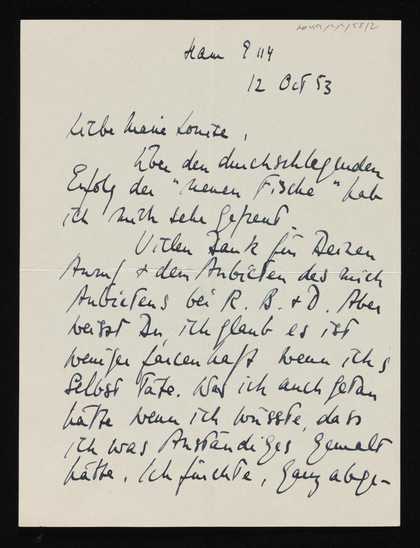 Ham 9114
12 Oct 53
Liebe Marie Louise,
Über den durchschlagenden
Erfolg der "neuen Fische" hab
ich mich sehr gefreut
Vielen Dank für Deinen
Anruf + den Anbieten des mich
Anbietens bei R. B. + D. Aber
weisst Du, ich glaub es ist
weniger farcenhaft wenn ichs
selbst täte. Was ich auch getan
hätte wenn ich wüsste, dass
ich was Anständiges gemalt
hätte. Ich fürchte, ganz abge-